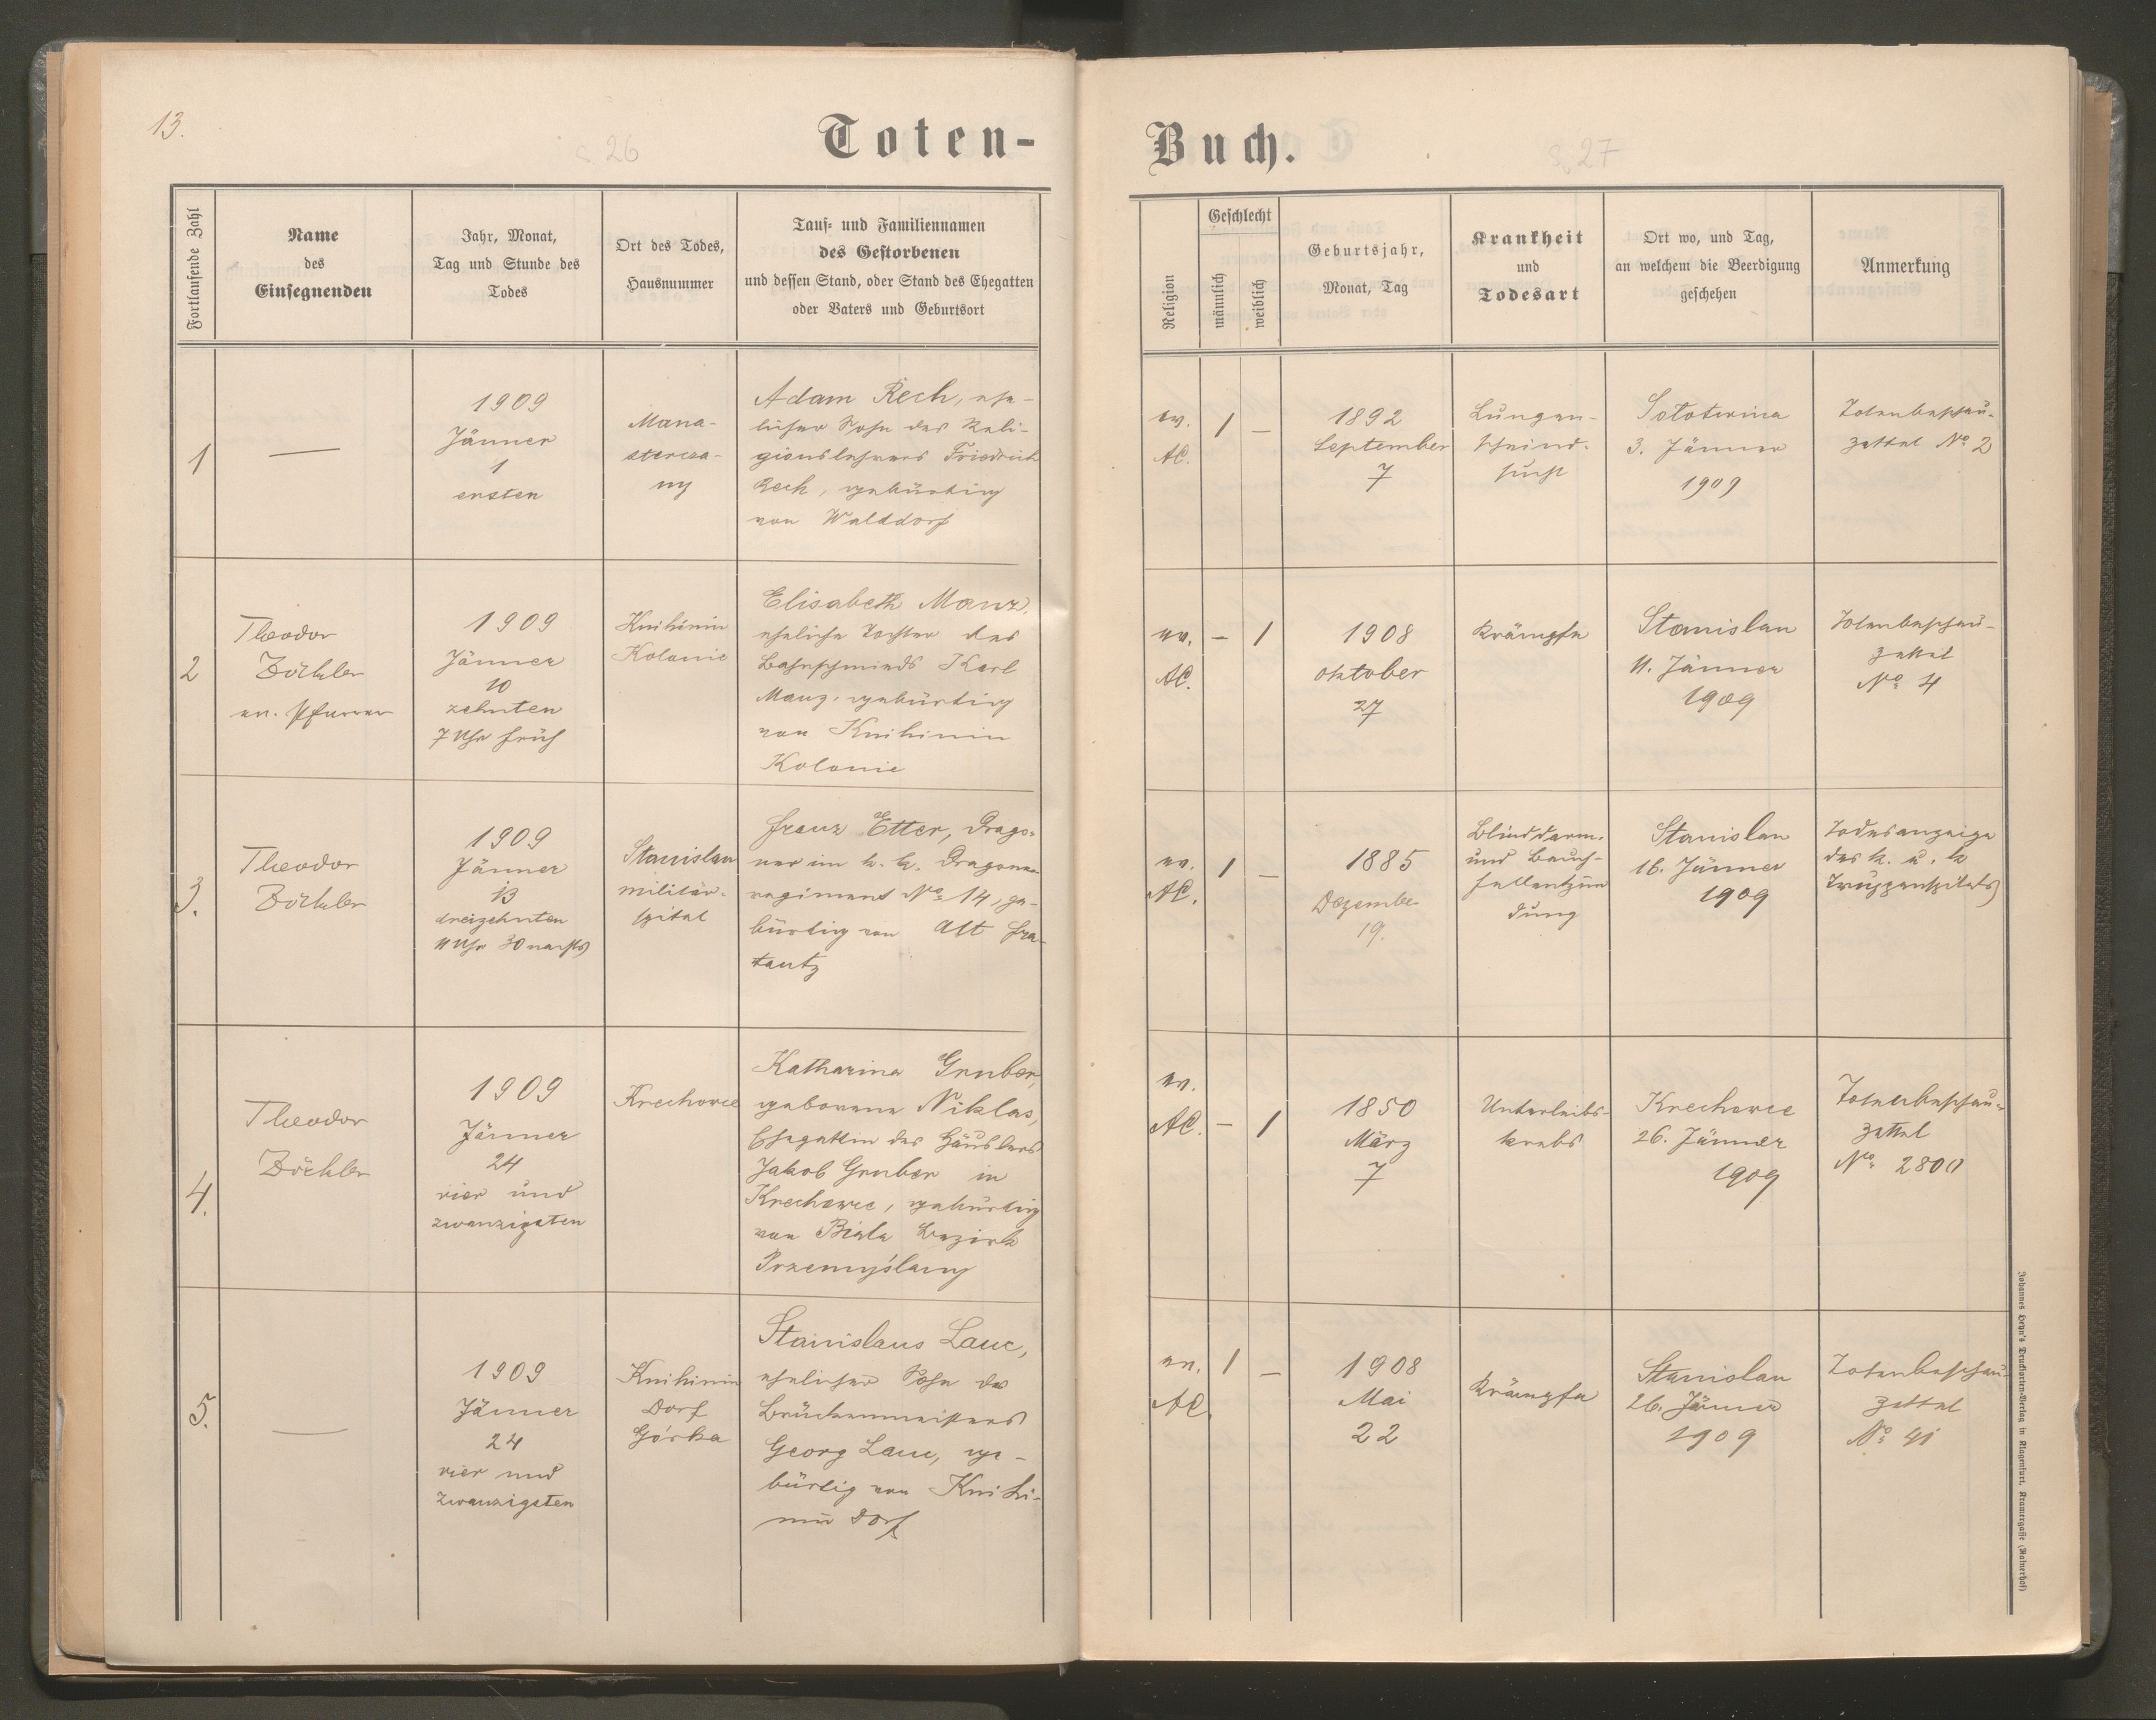 13.
26
Toten-
Buch.
27
Fortlaufende Zahl
Name
des
Einsegnenden
Jahr, Monat,
Tag und Stunde des
Todes
Ort des Todes,
Hausnummer
Tauf- und Familiennamen
des Gestorbenen
und dessen Stand, oder Stand des Ehegatten
oder Vaters und Geburtsort
Religion
Geschlecht
männlich
weiblich
Geburtsjahr,
Monat, Tag
Krankheit
und
Todesart
Ort wo, und Tag,
an welchem die Beerdigung
geschehen
Anmerkung
1
—
1909
Jänner
1
ersten
Mana-
sterca-
ny
Adam Rech, ehe-
licher Sohn des Reli-
gionslehrers Friedrich
Rech, gebürtig
von Walddorf
ev.
AC.
1
—
1892
September
7
Lungen-
schwind-
sucht
Sototwina
3. Jänner
1909
Totenbeschau-
zettel No 2
2
Theodor
Zöckler
ev. Pfarrer
1909
Jänner
10
zehnten
7 Uhr früh
Knihinin
Kolonie
Elisabeth Manz,
eheliche Tochter des
Bahnschmieds Karl
Manz, gebürtig
von Knihinin
Kolonie
ev.
AC.
—
1
1908
Oktober
27
Krämpfe
Stanislau
11. Jänner
1909
Totenbeschau-
zettel
No 4
3.
Theodor
Zöckler
1909
Jänner
13
dreizehnten
11 Uhr 30 nachts
Stanislau
militär-
spital
Franz Etter, Drago-
ner im k. k. Dragoner-
regiment No 14, ge-
bürtig von Alt Fra-
tautz
ev.
AC.
1
—
1885
Dezember
19.
Blinddarm-
und Bauch-
fellentzün
dung
Stanislau
16. Jänner
1909
Todesanzeige
des k. u. k
Truppenspitals
4.
Theodor
Zöckler
1909
Jänner
24
vier und
zwanzigsten
Krechowce
Katharina Gruber,
geborene Niklas,
Ehegattin des Häuslers
Jakob Gruber in
Krechowce, gebürtig
von Biala Bezirk
Przemyślany
ev.
AC.
—
1
1850
März
7
Unterleibs-
krebs
Krechowce
26. Jänner
1909
Totenbeschau-
zettel
No
5.
—
1909
Jänner
24
vier und
zwanzigsten
Knihinin
Dorf
Górka
Stanislaus Lauc,
ehelicher Sohn des
Brückenmeisters
Georg Lauc, ge-
bürtig von Knihi-
nin Dorf
ev.
AC.
1
—
1908
Mai
22
Krämpfe
Stanislau
26. Jänner
1909
Totenbeschau-
zettel
No 41
Johannes Heyn's Drucksorten-Verlag in Klagenfurt, Kramergasse (Rainerhof)